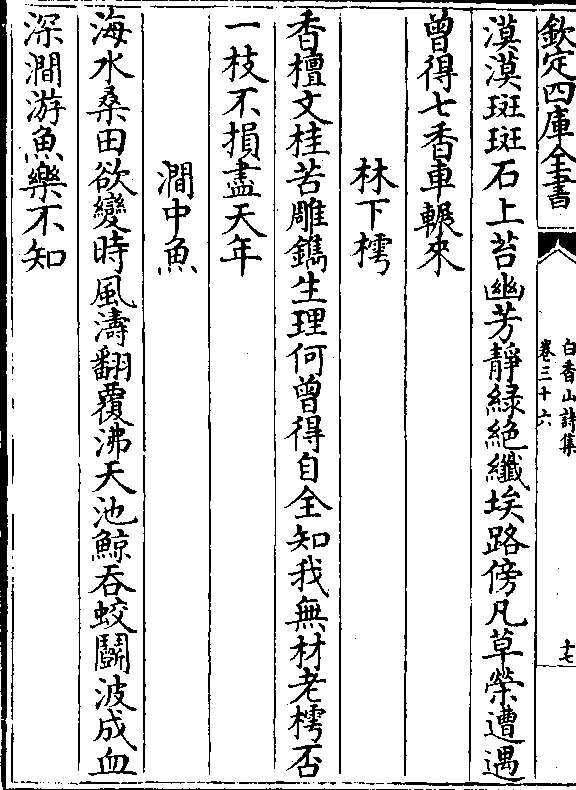 欽定四庫全書
白香山詩集
卷三十六
十七
漠漠斑斑石上苔幽芳靜緑絶纖埃路傍凡草榮遭遇
曾得七香車輾來
林下樗
香檀文桂苦雕鐫生理何曾得自全知我無材老樗否
一枝不損盡天年
澗中魚
海水桑田欲變時風濤翻覆沸天池鯨吞蛟鬭波成血
深澗游魚樂不知